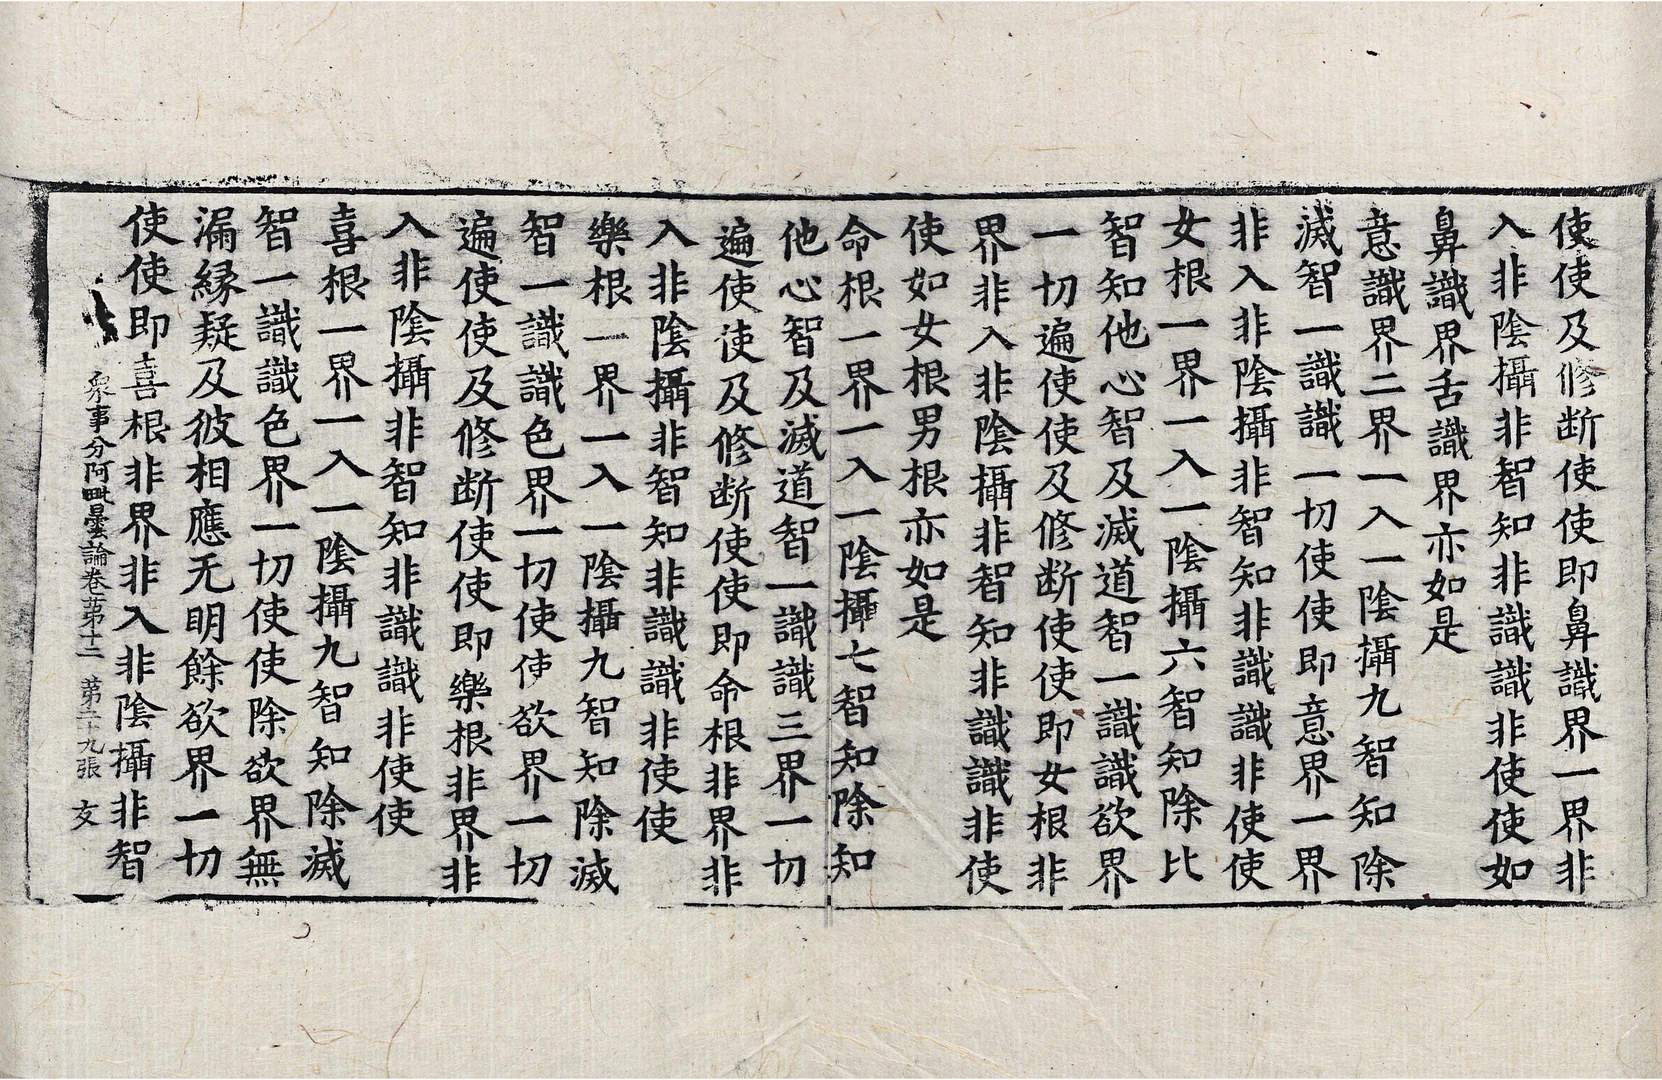 使使及修断使使即鼻識界一界非
入非陰攝非智知非識識非使使如
鼻識界舌識界亦如是
意識界二界一入一陰攝九智知除
滅智一識識一切使使即意界一界
非入非陰攝非智知非識識非使使
女根一界一入一陰攝六智知除比
智知他心智及滅道智一識識欲界
一切遍使使及修断使使即女根非
界非入非陰攝非智知非識識非使
使如女根男根亦如是
命根一界一入一陰攝七智知除知
他心智及滅道智一識識三界一切
遍使使及修断使使即命根非界非
入非陰攝非智知非識識非使使
樂根一界一入一陰攝九智知除滅
智一識識色界一切使使欲界一切
遍使使及修断使使即樂根非界非
入非陰攝非智知非識識非使使
喜根一界一入一陰攝九智知除滅
智一識識色界一切使使除欲界無
漏縁疑及彼相應无明餘欲界一切
使使即喜根非界非入非陰攝非智
衆事分阿毗曇論卷苐十二 苐二十九張 友